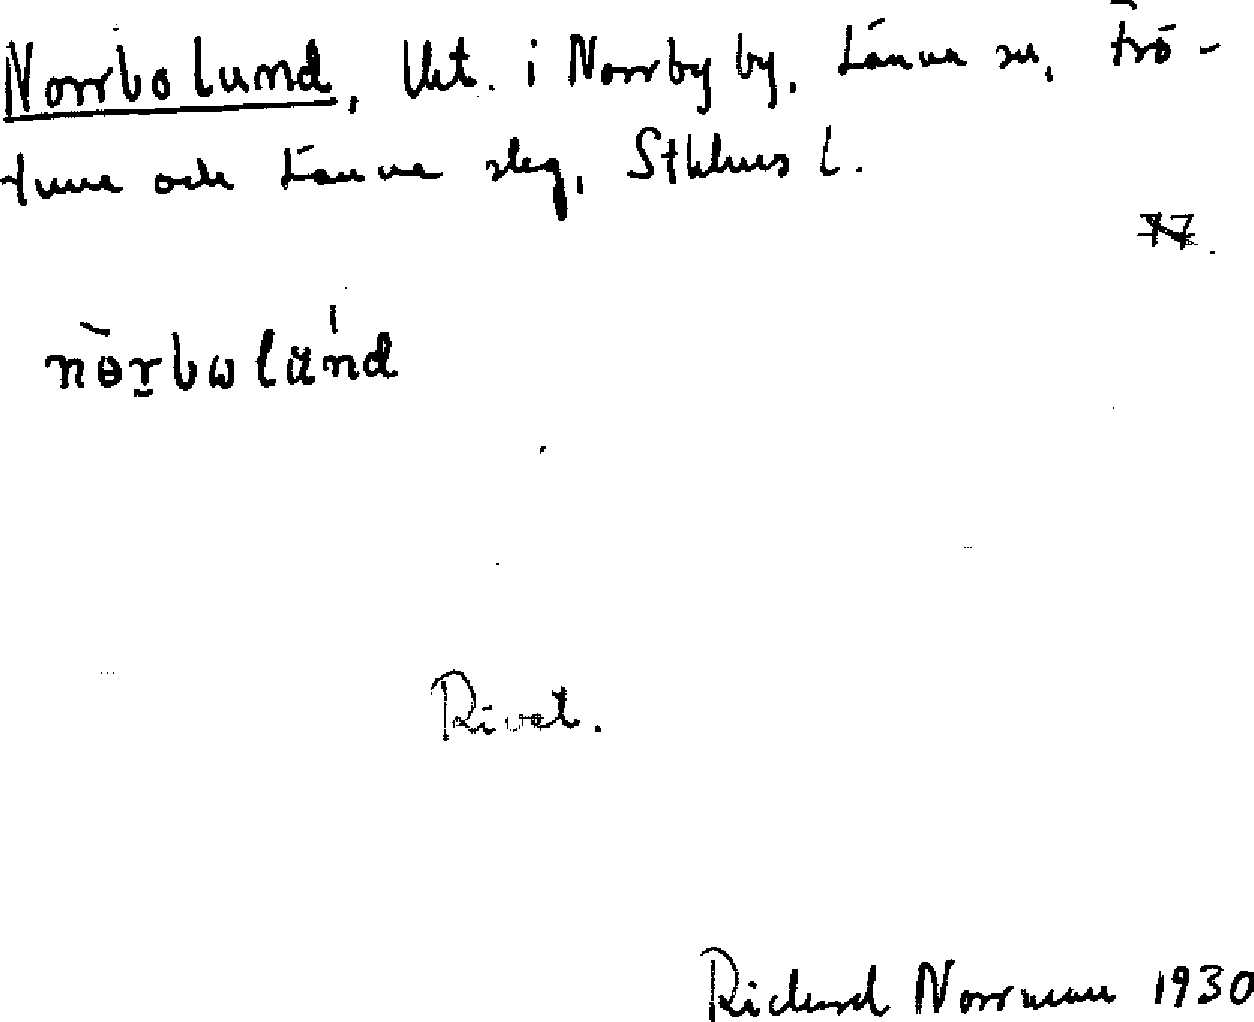 Norrbolund, lht. i Norrby by, Länna sn, Frö-
tuna och Länna sklg, Sthlms l.
nòrbolúnd
Rivet.
Rickard Norrman 1930